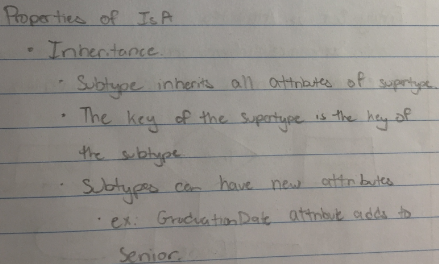 Properties of IsA
• Inheritance
• Subtype inherits all attributes of supertype.
• The key of the supertype is the key of
the subtype
• Subtypes can have new attributes
• ex: GraduationDate attribute adds to
Senior.